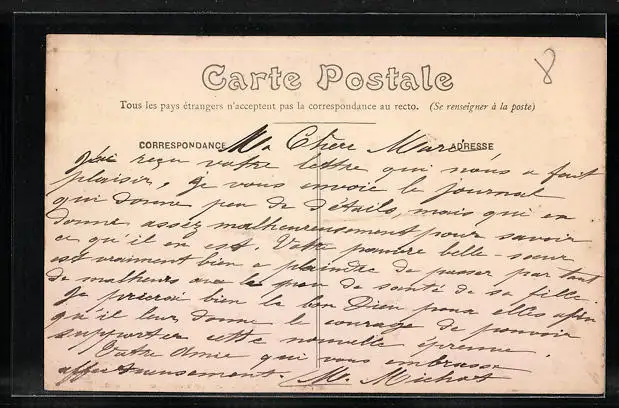 8
Carte Postale
Tous les pays étrangers n'acceptent pas la correspondance au recto. (Se renseigner à la poste)
CORRESPONDANCE ADRESSE
Chère Marie
J'ai reçu votre lettre qui nous a fait
plaisir, je vous envoie le journal
qui donne peu de détails, mais qui en
donne assez malheureusement pour savoir
ce qu'il en est. Votre pauvre belle-sœur
est vraiment bien a plaindre de passer par tant
de malheurs avec le peu de santé de sa fille.
Je prierai bien le bon Dieu pour elles afin
qu'il leur donne le courage de pouvoir
supporter cette nouvelle épreuve.
Votre Amie qui vous embrasse
affectueusement. Michot